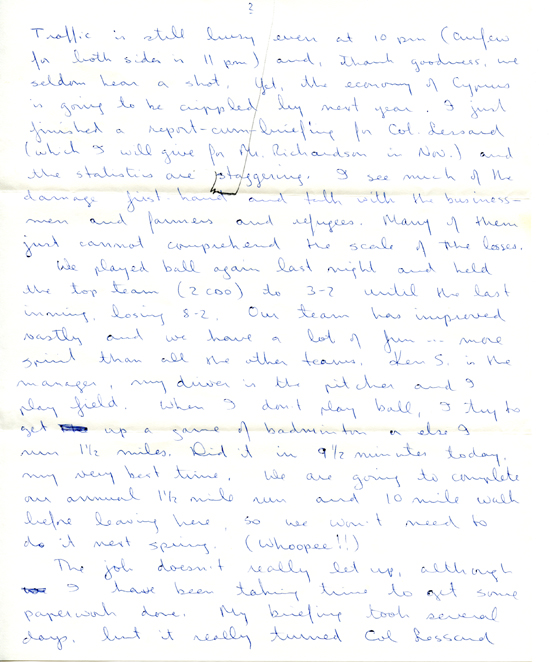 2
Traffic is still busy even at 10 pm (curfew
for both sides is 11 pm) and, thank goodness, we
seldom hear a shot. Yet, the economy of Cyprus
is going to be crippled by next year. I just
finished a report-cum-briefing for Col. Lessard
(which I will give for Mr. Richardson in Nov.) and
the statistics are staggering. I see much of the
damage first hand and talk with the business-
men and farmers and refugees. Many of them
just cannot comprehend the scale of the losses.
We played ball again last night and held
the top team (2 CDO) to 3-2 until the last
inning, losing 8-2. Our team has improved
vastly and we have a lot of fun ... more
spirit than all the other teams. Ken S. is the
manager, my driver is the pitcher and I
play field. When I don't play ball, I try to
get up a game of badminton or else I
run 1½ miles. Did it in 9½ minutes today,
my very best time. We are going to complete
our annual 1½ mile run and 10 mile walk
before leaving here, so we won't need to
do it next spring. (Whoopee!!)
The job doesn't really let up, although
I have been taking time to get some
paperwork done. My briefing took several
days, but it really turned Col Lessard